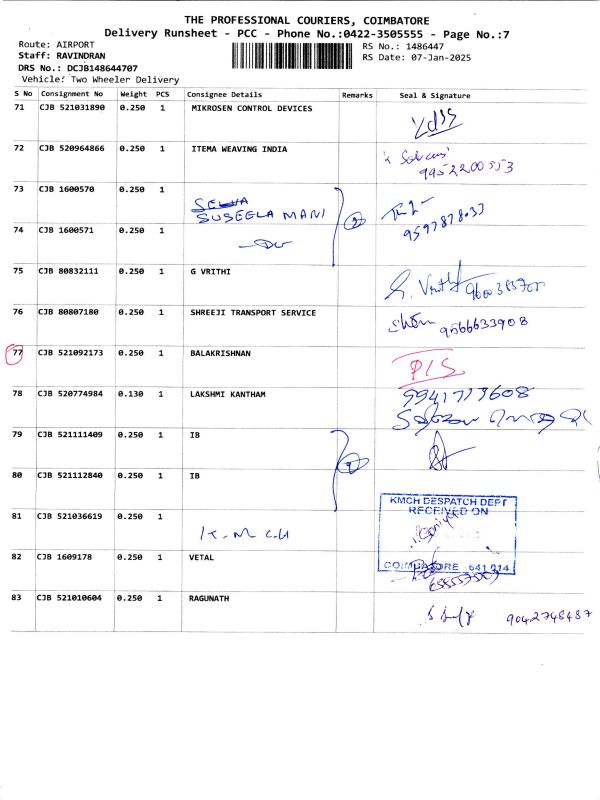 THE PROFESSIONAL COURIERS, COIMBATORE
Delivery Runsheet - PCC - Phone No.:0422-3505555 - Page No.:7
Route: AIRPORT
Staff: RAVINDRAN
DRS No.: DCJB148644707
Vehicle: Two Wheeler Delivery
RS No.: 1486447
RS Date: 07-Jan-2025
S No Consignment No Weight PCS Consignee Details Remarks Seal & Signature
71 CJB 521031890 0.250 1 MIKROSEN CONTROL DEVICES
72 CJB 520964866 0.250 1 ITEMA WEAVING INDIA
9952200553
73 CJB 1600570 0.250 1 SUSEELA MANI 2
9597878033
74 CJB 1600571 0.250 1
75 CJB 80832111 0.250 1 G VRITHI G. Vrithi
76 CJB 80807180 0.250 1 SHREEJI TRANSPORT SERVICE
9566633908
77 CJB 521092173 0.250 1 BALAKRISHNAN P/S
78 CJB 520774984 0.130 1 LAKSHMI KANTHAM 9941773608
79 CJB 521111409 0.250 1 IB 2
80 CJB 521112840 0.250 1 IB
81 CJB 521036619 0.250 1 K.M.C.H
KMCH DESPATCH DEPT
RECEIVED ON
COIMBATORE 641 014
82 CJB 1609178 0.250 1 VETAL
83 CJB 521010604 0.250 1 RAGUNATH 9042748487